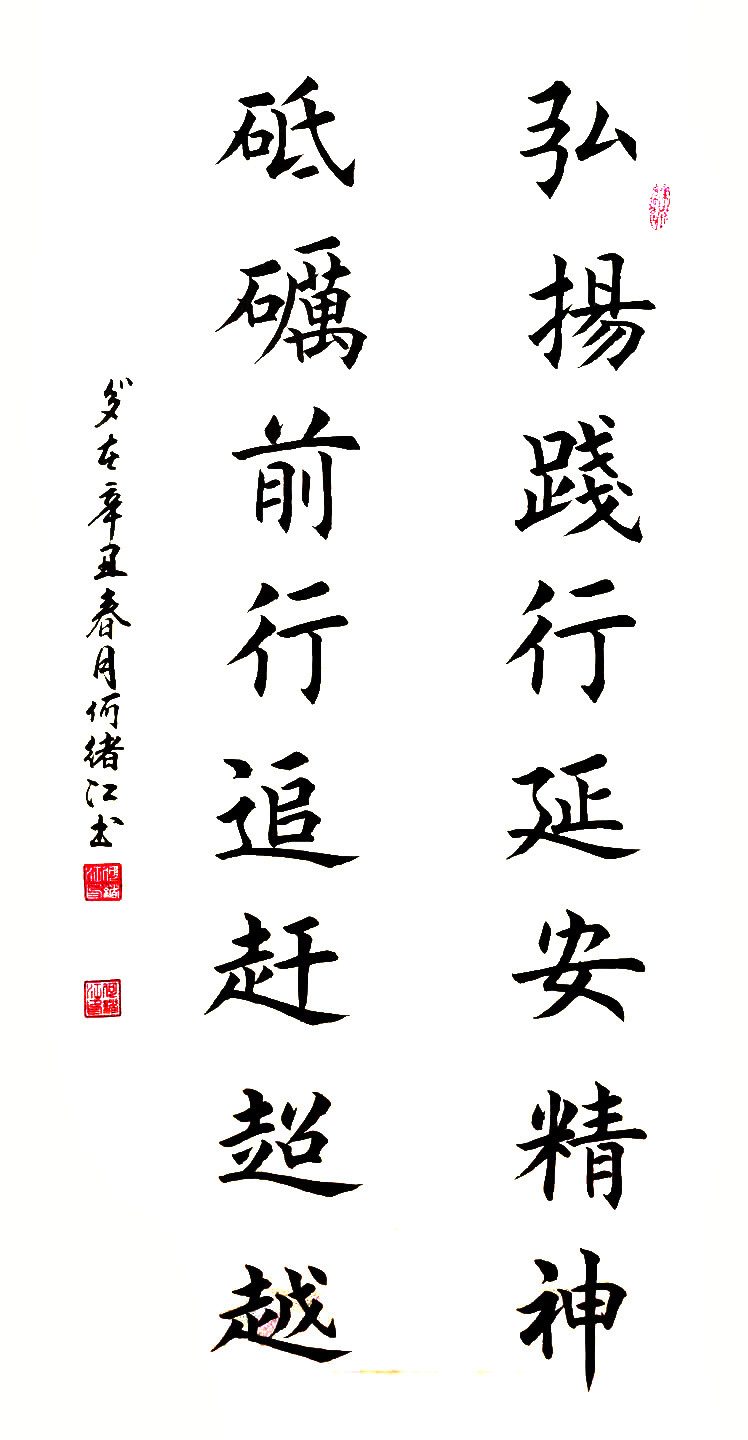 弘揚踐行延安精神
砥礪前行追赶超越
岁在辛丑春月何绪江书